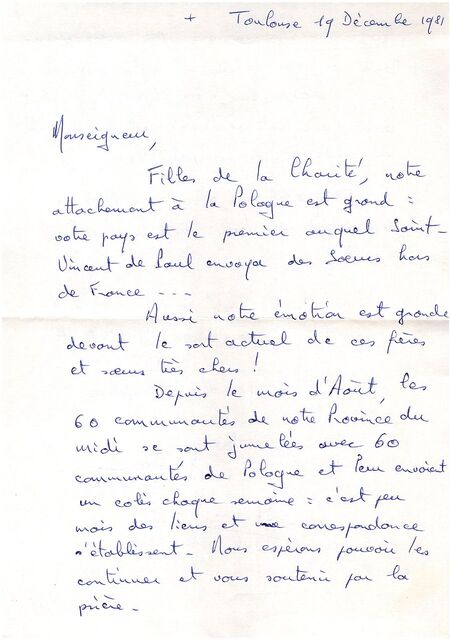 + Toulouse 19 Décembre 1981
Monseigneur,
Filles de la Charité, notre
attachement à la Pologne est grand :
votre pays est le premier auquel Saint-
Vincent de Paul envoya des Sœurs hors
de France ---
Aussi notre émotion est grande
devant le sort actuel de ces frères
et sœurs très chers !
Depuis le mois d'Août, les
60 communautés de notre Province du
midi se sont jumelées avec 60
communautés de Pologne et leur envoient
un colis chaque semaine : c'est peu
mais des liens et une correspondance
s'établissent - Nous espérons pouvoir les
continuer et vous soutenir par la
prière -